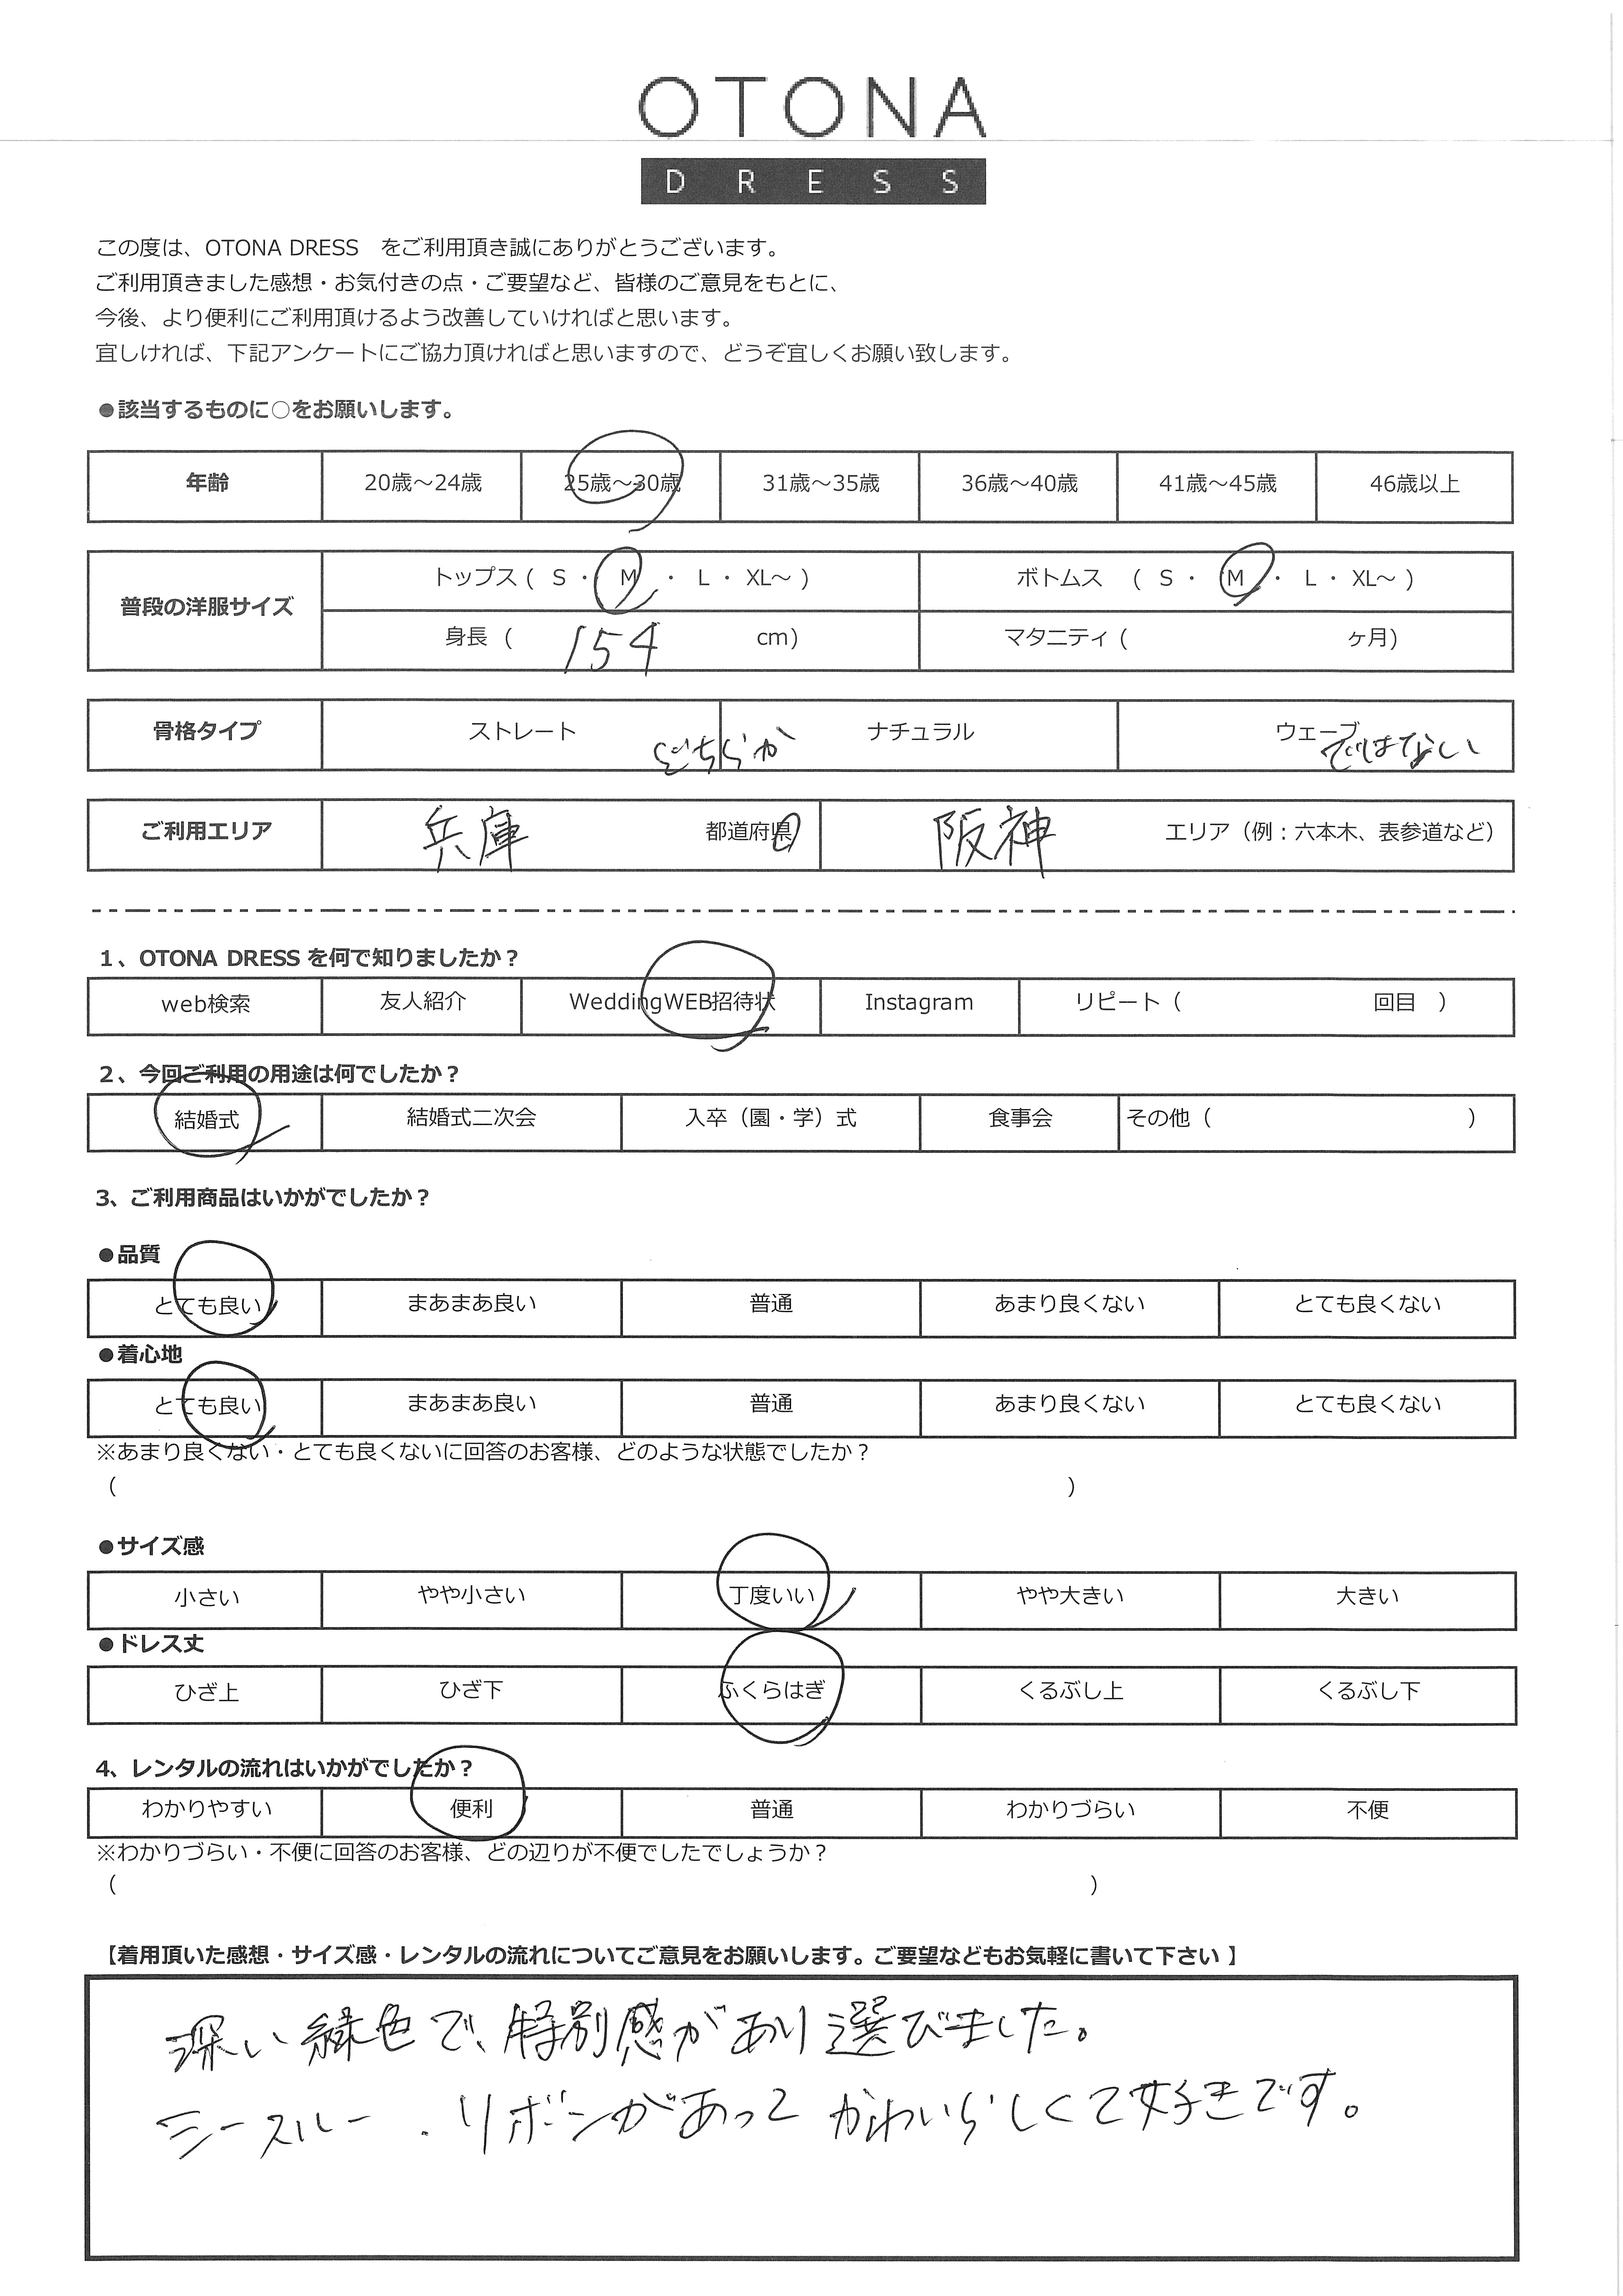 OTONA
DRESS
この度は、OTONA DRESS　をご利用頂き誠にありがとうございます。
ご利用頂きました感想・お気付きの点・ご要望など、皆様のご意見をもとに、
今後、より便利にご利用頂けるよう改善していければと思います。
宜しければ、下記アンケートにご協力頂ければと思いますので、どうぞ宜しくお願い致します。
●該当するものに○をお願いします。
年齢 20歳～24歳 25歳～30歳 31歳～35歳 36歳～40歳 41歳～45歳 46歳以上
普段の洋服サイズ トップス ( S ・ M ・ L ・ XL～ ) ボトムス ( S ・ M ・ L ・ XL～ )
身長 ( 154 cm) マタニティ ( ヶ月)
骨格タイプ ストレート どちらか ナチュラル ウェーブ ではない
ご利用エリア 兵庫 都道府県 阪神 エリア（例：六本木、表参道など）
1、OTONA DRESS を何で知りましたか？
web検索 友人紹介 WeddingWEB招待状 Instagram リピート（ 回目 ）
2、今回ご利用の用途は何でしたか？
結婚式 結婚式二次会 入卒（園・学）式 食事会 その他（ ）
3、ご利用商品はいかがでしたか？
●品質
とても良い まあまあ良い 普通 あまり良くない とても良くない
●着心地
とても良い まあまあ良い 普通 あまり良くない とても良くない
※あまり良くない・とても良くないに回答のお客様、どのような状態でしたか？
（ ）
●サイズ感
小さい やや小さい 丁度いい やや大きい 大きい
●ドレス丈
ひざ上 ひざ下 ふくらはぎ くるぶし上 くるぶし下
4、レンタルの流れはいかがでしたか？
わかりやすい 便利 普通 わかりづらい 不便
※わかりづらい・不便に回答のお客様、どの辺りが不便でしたでしょうか？
（ ）
【着用頂いた感想・サイズ感・レンタルの流れについてご意見をお願いします。ご要望などもお気軽に書いて下さい 】
深い緑色で、特別感があり選びました。
シースルー．リボンがあってかわいらしくて好きです。